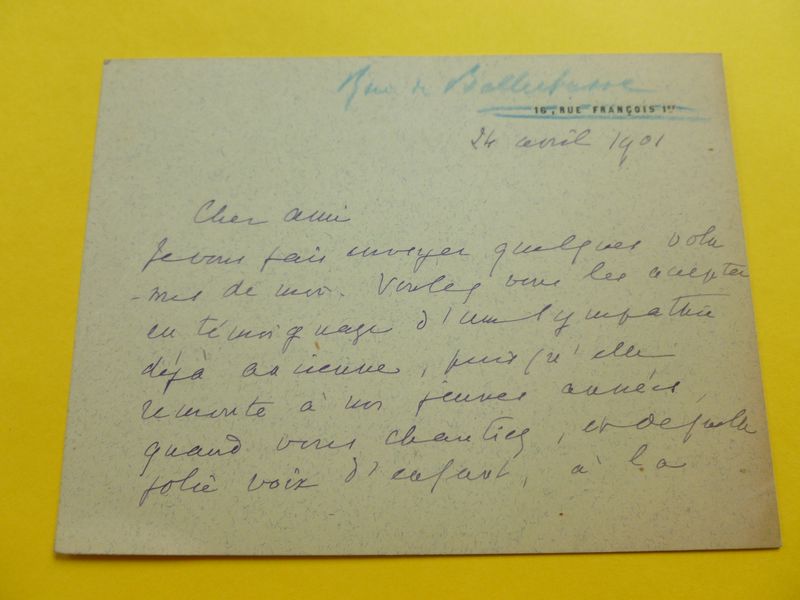 Rue de Bellechasse
16, RUE FRANÇOIS 1er
24 avril 1901
Cher ami
Je vous fais envoyer quelques volu
-mes de moi. Voulez vous les accepter
en témoignage d'une sympathie
déjà ancienne, puisqu'elle
remonte à nos jeunes années,
quand vous chantiez, et de quelle
jolie voix d'enfant, à la